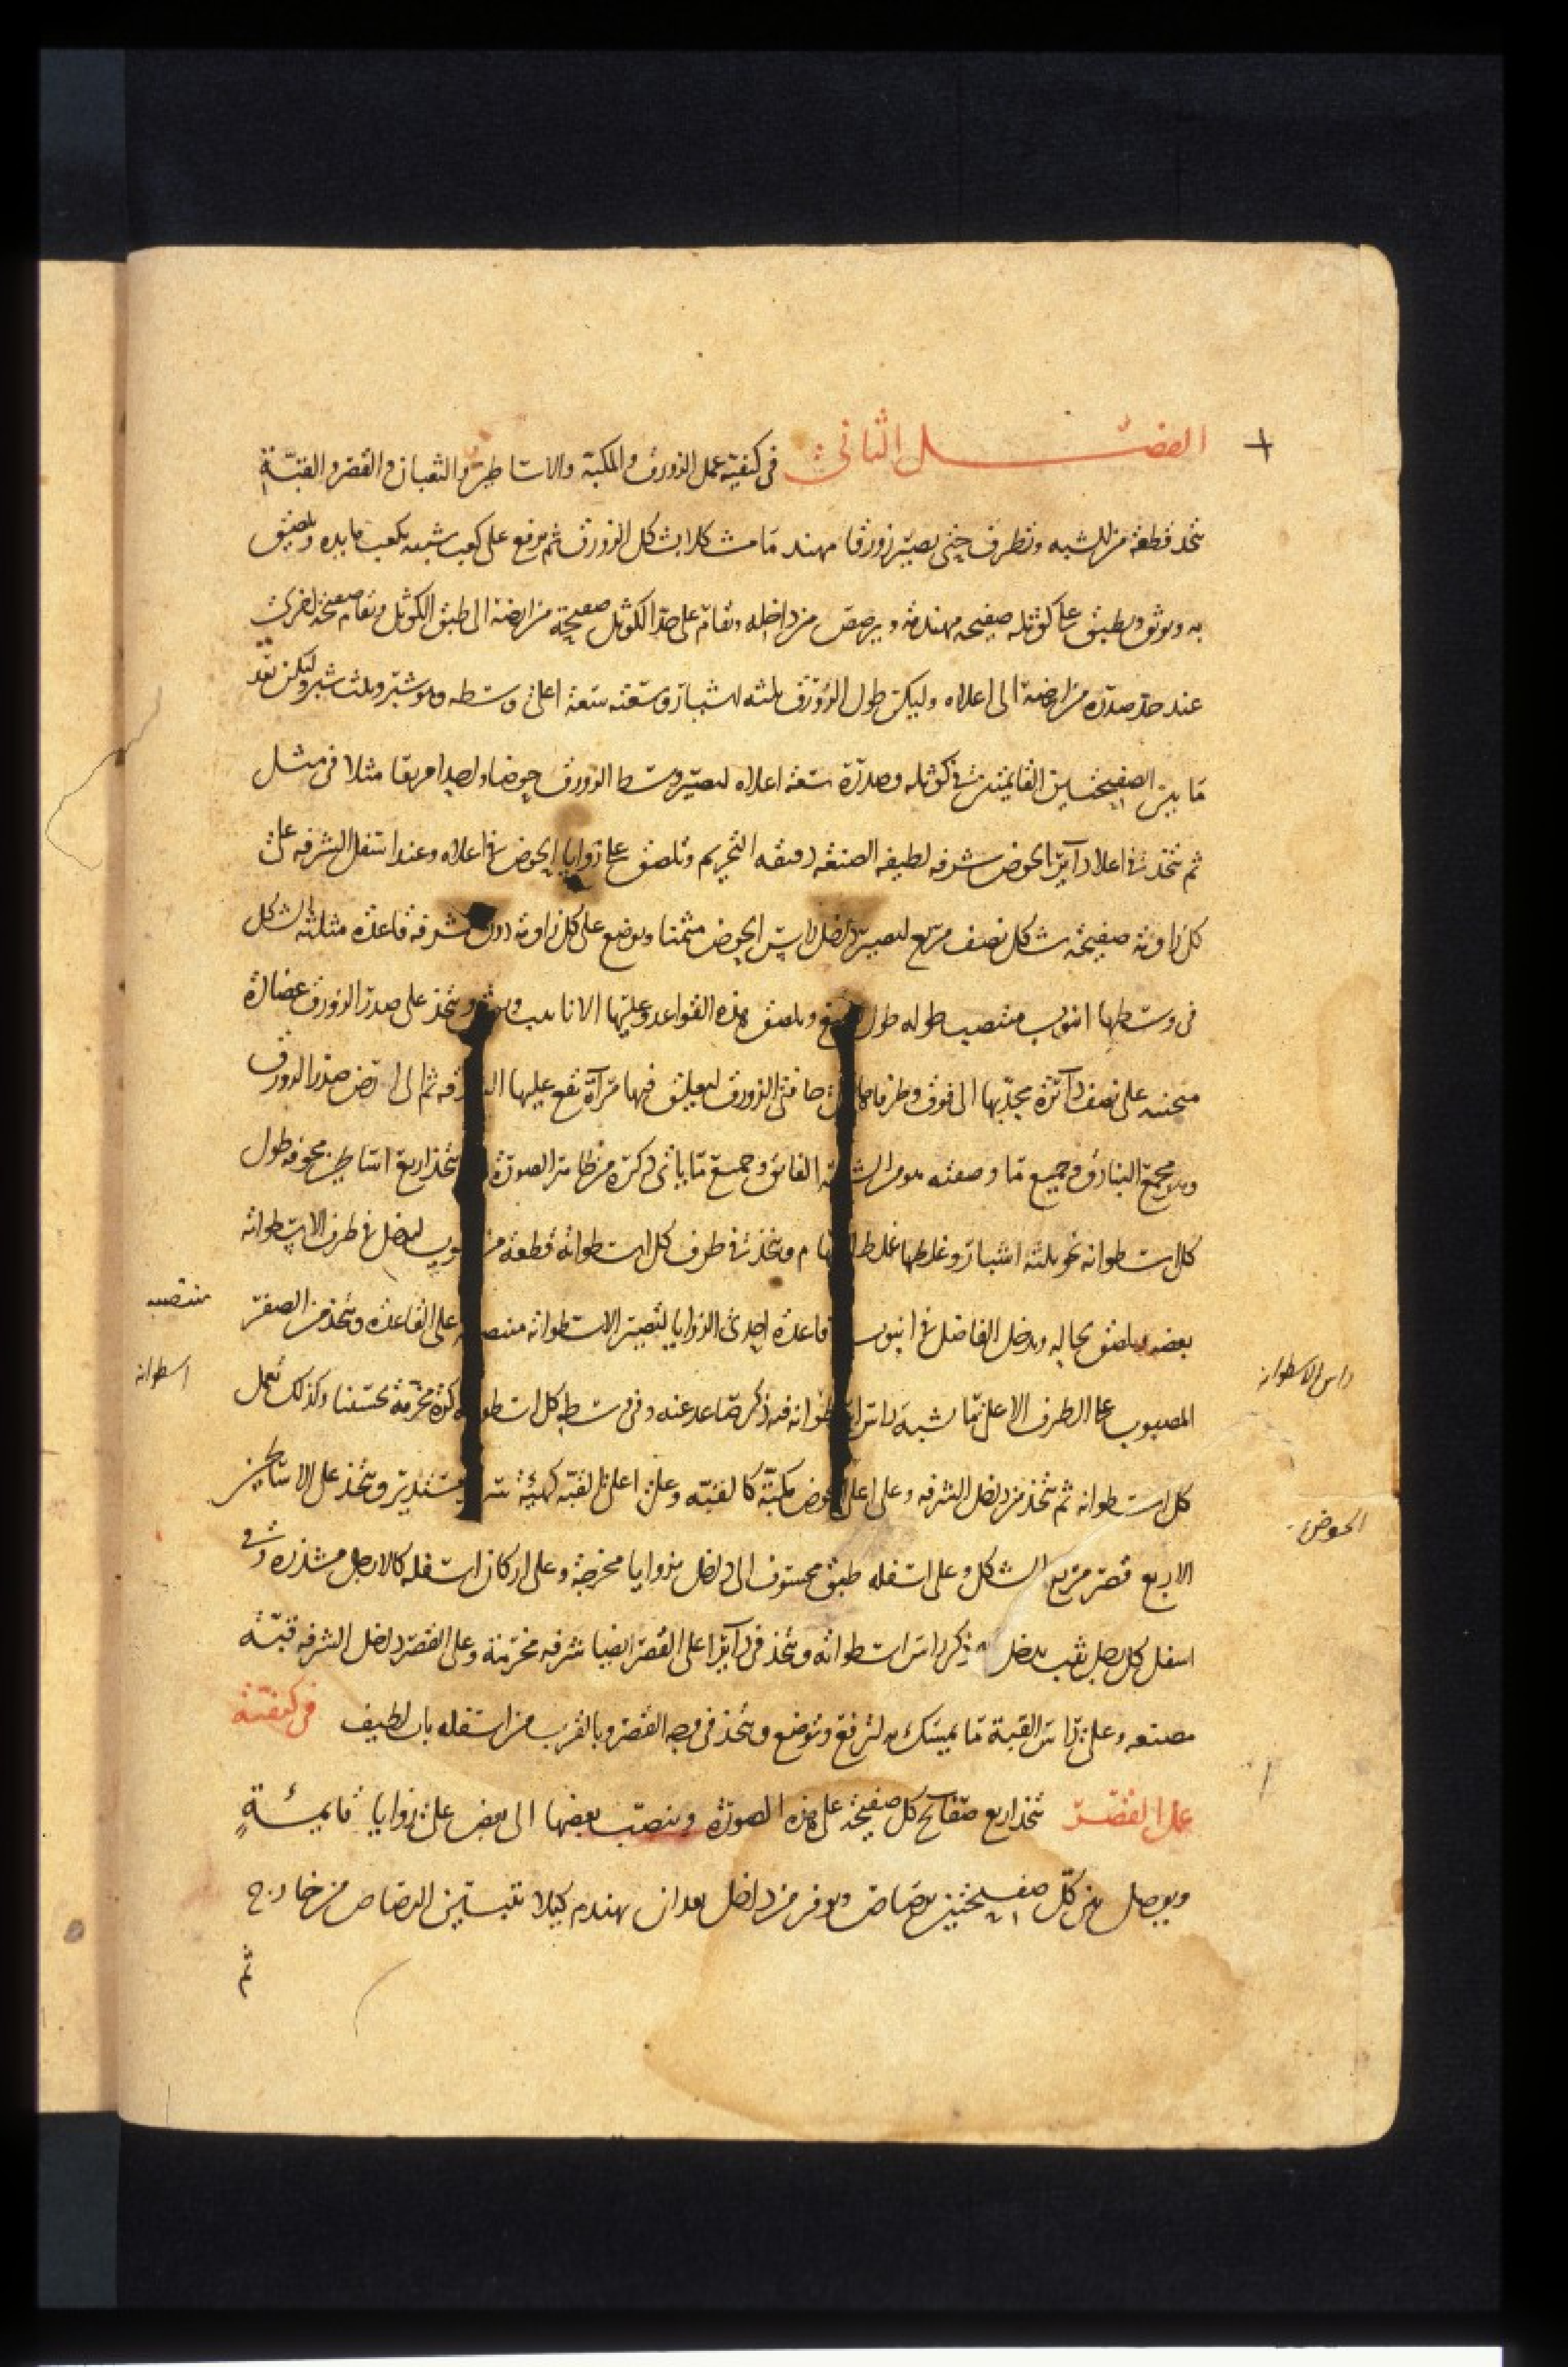 الفصل الثاني في كيفية عمل الزورق والمكبة والاساطين والثعبان والقصر والقبة
تتخذ قطعة من الشبه وتطرق حتى تصير زورقا مهندما مشاكلا بشكل الزورق ثم يرفع على كعب شبه بكعب مايده ويلصق
به ويوثق ويطبق على كوثله صفيحه مهندمة ويرصص من داخله وتقام على حد الكوثل صفيحة من ارضه الى طبق الكوثل وتقام صفيحة اخرى
عند حد صدره من ارضه الى اعلاه وليكن طول الزورق ثلثه اشبار وسعته سعة اعلى وسطه وهو شبر وثلث شبر وليكن بعد
ما بين الصفيحتين القايمتين في كوثله وصدره سعة اعلاه ليصير وسط الزورق حوضا واحدا مربعا مثلا في مثل
ثم تتخذ في اعلا داير الحوض شرفه لطيفه الصنعه دقيقه التخريم وتلصق على زوايا الحوض في اعلاه وعند اسفل الشرفه على
كل زاوية صفيحة شكل نصف مربع ليصير داخل راس الحوض مثمنا ويوضع على كل زاوية دون الشرفه قاعدة مثلثة الشكل
في وسطها انبوب منتصب طوله طول اصبع ويلصق هذه القواعد وعليها الانابيب ويوثق ويتخذ على صدر الزورق عضادة
منحنيه على نصف دائرة يحدبها الى فوق وطرفاها على حافتي الزورق ليعلق فيها مرآة تقع عليها البندقه ثم الى ارض صدر الزورق
وهو مجمع البنادق وجميع ما وصفته هو من الشبه الفائق وجميع ما ياتي ذكره من ظاهر الصورة ثم يتخذ اربع اساطين مجوفه طول
كل اسطوانه نحو ثلثة اشبار وغلظها غلظ الابهام ويتخذ في طرف كل اسطوانة قطعة من انبوب ليدخل في طرف الاسطوانه
بعضه ويلصق بحاله ويدخل الفاضل في انبوب قاعدة احدى الزوايا لتصير الاسطوانه منتصبه على القاعدة ويتخذ من الصفر
المصبوب على الطرف الاعلى ما يشبه راس اسطوانه فيه ذكر صاعد عنه وفي وسط كل اسطوانه كرة مخرمة تحسينا وكذلك تعمل
كل اسطوانه ثم تتخذ من داخل الشرفه وعلى اعلى الحوض مكبة كالقبه وعلى اعلى القبه كهيئة سرير مستدير ويتخذ على الاساطين
الاربع قصر مربع الشكل وعلى اسفله طبق محسوف الى داخل بزوايا مخرجة وعلى اركان اسفله كالارجل مشذره وفي
اسفل كل رجل ثقب يدخل فيه ذكر راس اسطوانه ويتخذ في داير اعلى القصر ايضا شرفه مخرمة وعلى القصر داخل الشرفه قبة
مصنعه وعلى راس القبة ما يمسك به لترفع وتوضع ويتخذ في وجه القصر وبالقرب من اسفله باب لطيف في كيفية
عمل القصر تتخذ اربع صفايح كل صفيحة على هذه الصورة وينصب بعضها الى بعض على زوايا قايمة
ويوصل بين كل صفيحتين برصاص ويوفر من داخل بعد ان يهندم كيلا يتبين الرصاص من خارج
ثم
منتصبه
اسطوانه
راس الاسطوانه
الحوض